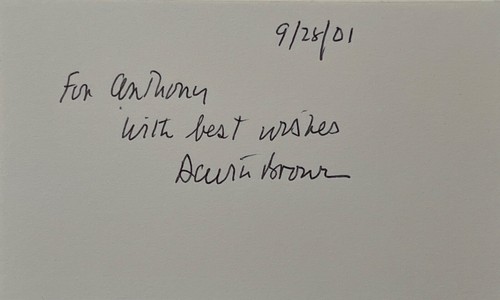 9/28/01
For Anthony
With best wishes
Brown